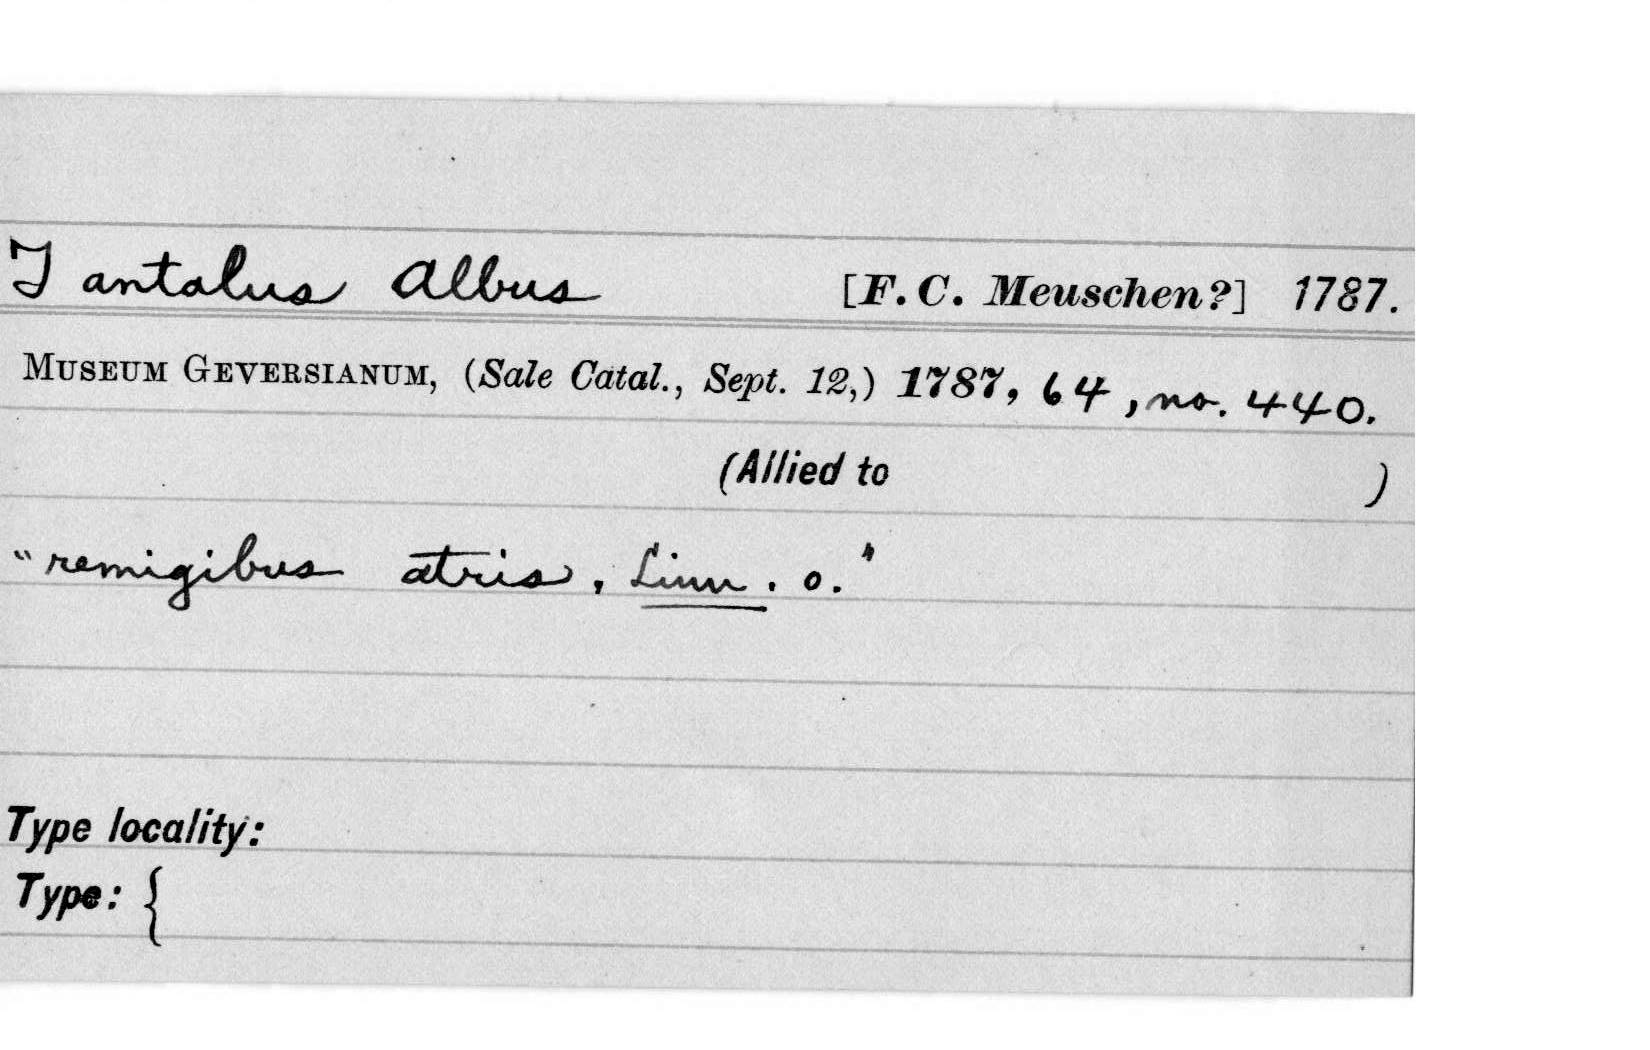 Tantalus Albus [F. C. Meuschen?] 1787.
MUSEUM GEVERSIANUM, (Sale Catal., Sept. 12,) 1787, 64, no. 440.
(Allied to )
"remigibus atris, Linn. o."
Type locality:
Type: {